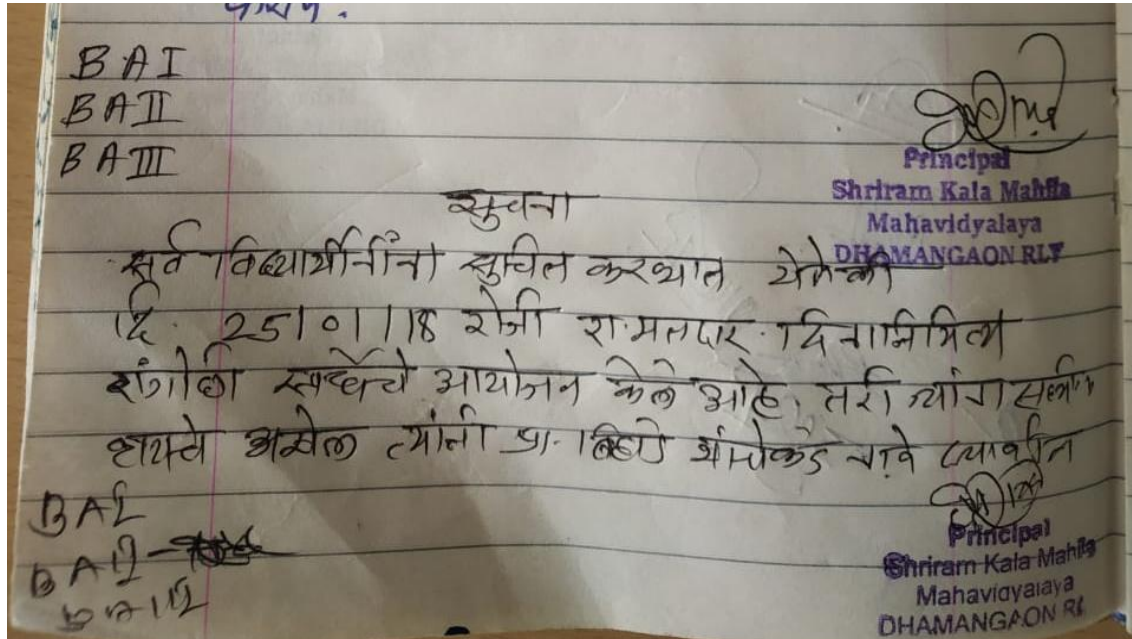 BA I
BA II
BA III
Principal
Shriram Kala Mahila
Mahavidyalaya
DHAMANGAON RLY
सुचना
सर्व विद्यार्थीनींना सुचित करण्यात येते की
दि. 25/01/18 रोजी रा. मतदार दिनानिमित्य
रांगोळी स्पर्धेचे आयोजन केले आहे. तरी ज्यांना
व्हायचे असेल त्यांनी प्रा. यांचेकडे नावे द्यावीत
BA I
BA II
BA III
Principal
Shriram Kala Mahila
Mahavidyalaya
DHAMANGAON RL